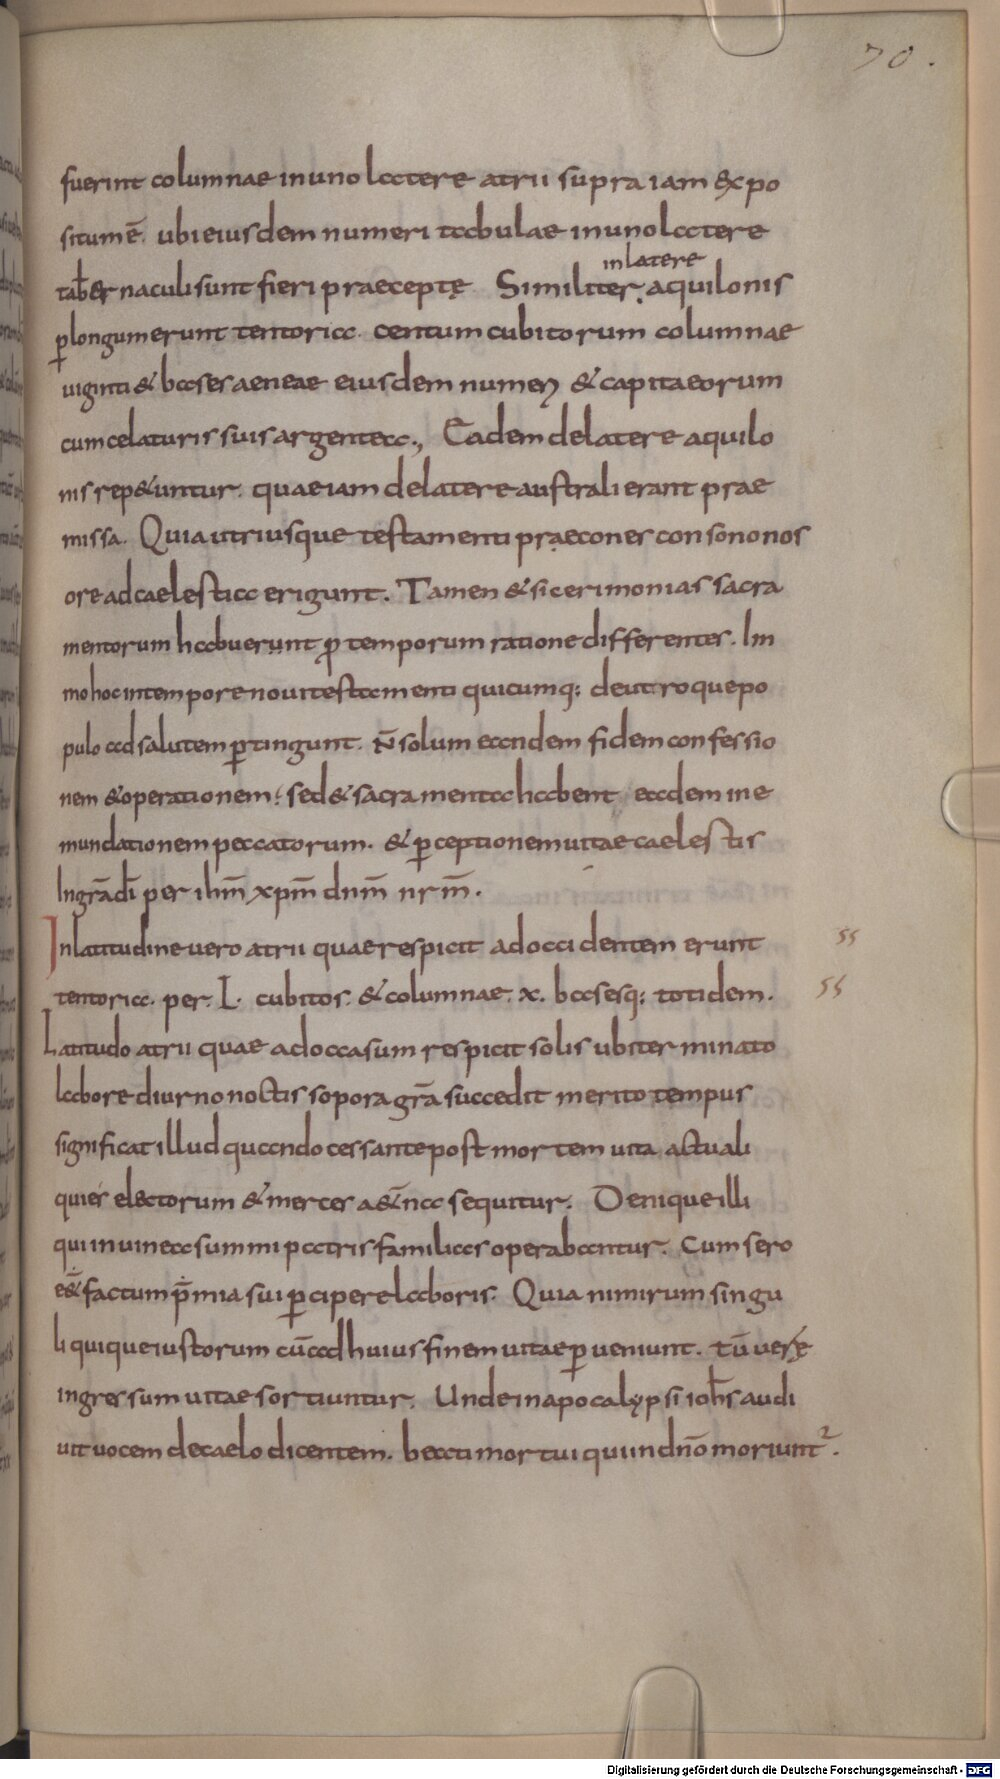 70.
fuerint columnae in uno latere atrii supra iam expo
situm ē. ubi eiusdem numeri tabulae in uno latere
in latere
tab̄ernaculi sunt fieri praeceptę Similiter, aquilonis
ꝑ longum erunt tentoria. centum cubitorum columnae
uiginti & bases aeneae eiusdem numeri & capita eorum
cum celaturis suis argentea., Eadem de latere aquilo
nis rep&untur. quae iam de latere australi erant prae
missa. Quia utriusque testamenti praecones consono nos
ore ad caelestia erigunt. Tamen & si cerimonias sacra
mentorum habuerunt ꝓ temporum ratione differentes. Im
mo hoc in tempore noui testamenti quicumq; de utroque po
pulo ad salutem ꝑtingunt. n̄ solum eandem fidem confessio
nem & operationem; sed & sacramenta habent eadem in e
mundationem peccatorum. & ꝑceptionem uitae caelestis
In gr̄a dī per ihm̄ xpm̄ dnm̄ nrm̄.
In latitudine uero atrii quae respicit ad occidentem erunt
ss
tentoria. per. L. cubitos. & columnae. x. basesq; totidem.
ss
Latitudo atrii quae ad occasum respicit solis ubi terminato
labore diurno noctis sopora gr̄a succedit merito tempus
significat illud quando cessante post mortem uita actuali
quies electorum & merces a&̄na sequitur. Denique illi
qui in uinea summi patris familias operabantur. Cum sero
e&̄ factum p̄mia sui ꝑcipere laboris. Quia nimirum singu
li quique iustorum cū ad huius finem uitae ꝑueniunt. tū uerę
ingressum uitae sortiuntur. Unde in apocalypsi ioh̄s audi
uit uocem de caelo dicentem. beati mortui qui in dn̄o moriunt².
Digitalisierung gefördert durch die Deutsche Forschungsgemeinschaft - DFG